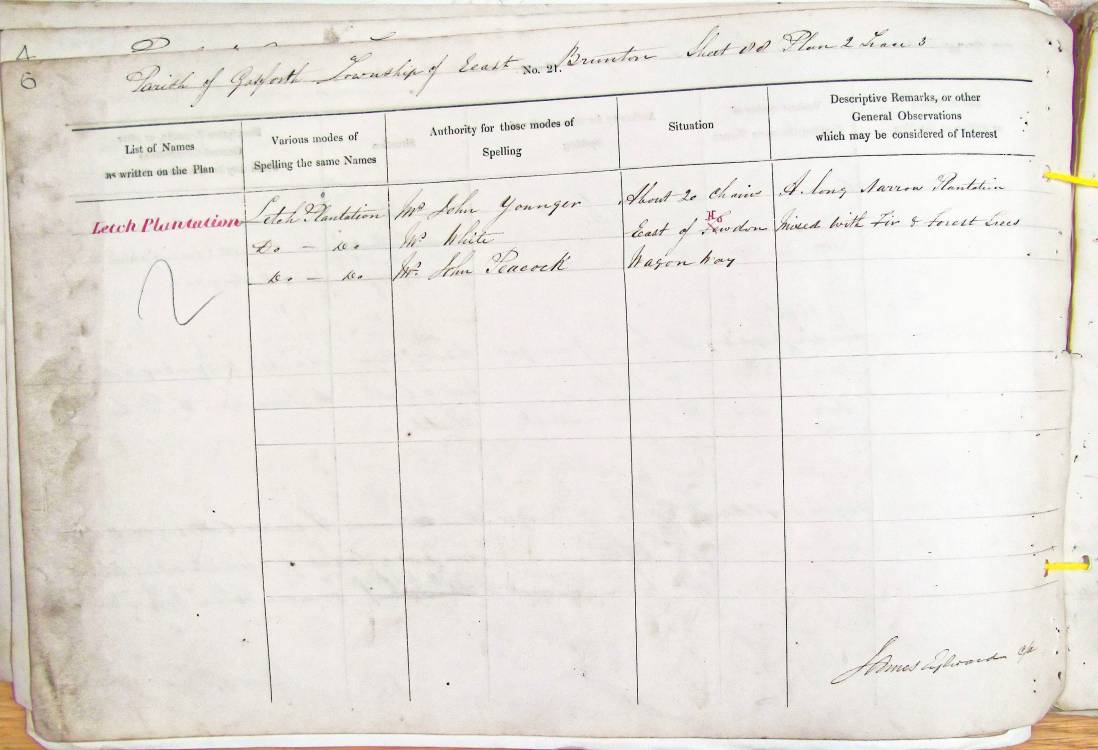 6
Parish of Gosforth Township of East Brunton Sheet 88 Plan 2 Trace 3
No. 21.
List of Names
as written on the Plan
Various modes of
Spelling the same Names
Authority for those modes of
Spelling
Situation
Descriptive Remarks, or other
General Observations
which may be considered of Interest
Letch Plantation
Letch Plantation
Do — Do
Do — Do
Mr John Younger
Mr White
Mr. John Peacock
About 20 Chains
East of Fawdon
Wagon Way
A long Narrow Plantation
Mixed with Fir & Forest Trees
James